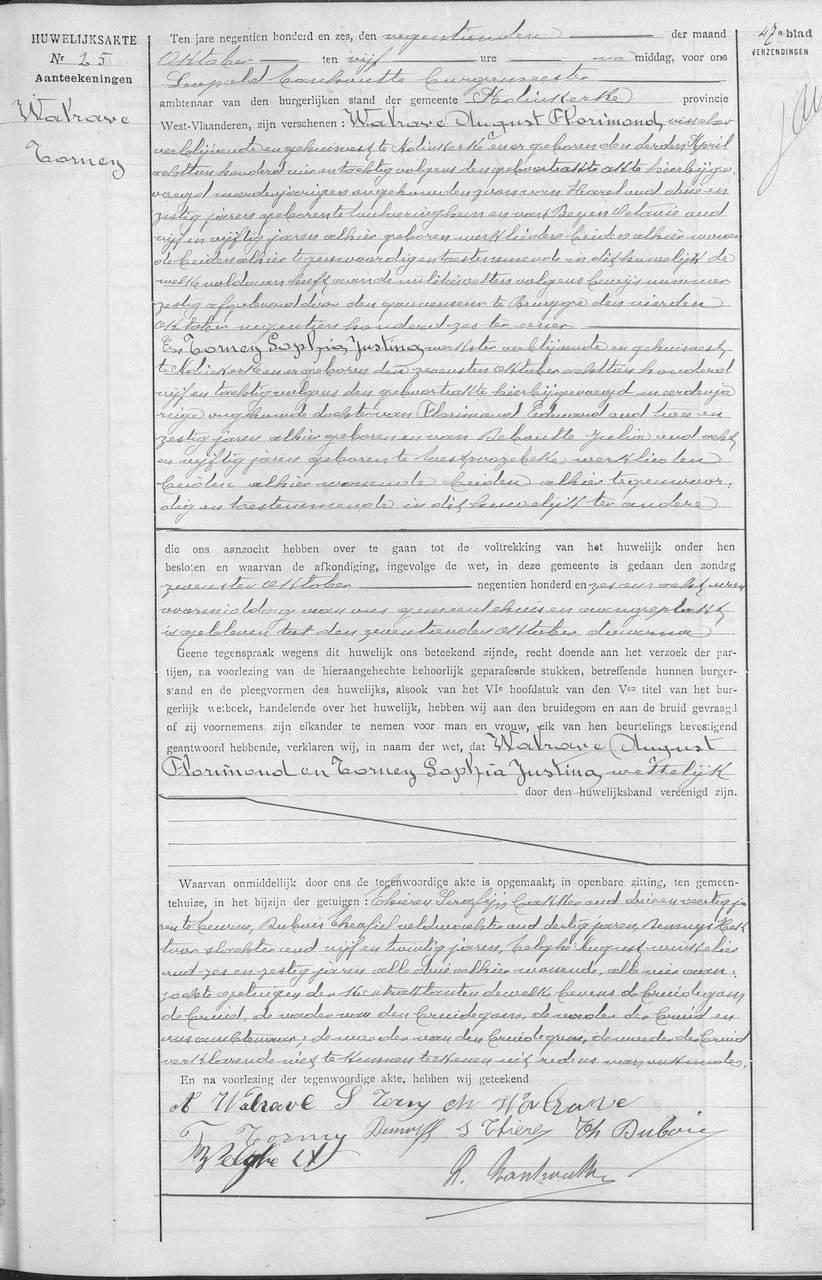 HUWELIJKSAKTE
Nr 25
Aanteekeningen
Walrave
Torney
47e blad
VERZENDINGEN
Ten jare negentien honderd en zes, den negentienden der maand
Oktober ten vijf ure na middag, voor ons
Leopold burgemeester
ambtenaar van den burgerlijken stand der gemeente Adinkerke provincie
West-Vlaanderen, zijn verschenen : Walrave August Florimond, visscher
verblijvende en gehuisvest te Adinkerke en er geboren den derden April
achttien honderd vier en tachtig volgens den geboorteakte hierbijge-
voegd meerderjarigen ongehuwden zoon van Karel oud drie en
zestig jaren geboren te en van Beyen Octavie oud
vijf en vijftig jaren alhier geboren werklieden beiden alhier wonen
de beiden alhier tegenwoordig en toestemmende in dit huwelijk de
welke voldaan heeft aan de militiewetten volgens bewijs nummer
zestig afgeleverd door den gouverneur te Brugge den vierden
Oktober negentien honderd zes ter eener
En Torney Sophia Justina, werkster verblijvende en gehuisvest
te Adinkerke en er geboren den zevensten Oktober achttien honderd
vijf en tachtig volgens den geboorteakte hierbijgevoegd meerderja
rige ongehuwde dochter van Florimond Edouard oud twee en
zestig jaren alhier geboren en van Decoutte Julia oud acht
en vijftig jaren geboren te Westvoozebeke werklieden
beiden alhier wonende beiden alhier tegenwoor-
dig en toestemmende in dit huwelijk ter andere
die ons aanzocht hebben over te gaan tot de voltrekking van het huwelijk onder hen
besloten en waarvan de afkondiging, ingevolge de wet, in deze gemeente is gedaan den zondag
zevensten Oktober negentien honderd en zes en acht uren
voormiddag van ons gemeentehuis en aangeplakt
is gebleven tot den zeventienden Oktober daarna
Geene tegenspraak wegens dit huwelijk ons beteekend zijnde, recht doende aan het verzoek der par-
tijen, na voorlezing van de hieraangehechte behoorlijk geparafeerde stukken, betreffende hunnen burger-
stand en de pleegvormen des huwelijks, alsook van het VIe hoofdstuk van den Ven titel van het bur-
gerlijk wetboek, handelende over het huwelijk, hebben wij aan den bruidegom en aan de bruid gevraagd
of zij voornemens zijn elkander te nemen voor man en vrouw, elk van hen beurtelings bevestigend
geantwoord hebbende, verklaren wij, in naam der wet, dat Walrave August
Florimond en Torney Sophia Justina, wettelijk
door den huwelijksband vereenigd zijn.
Waarvan onmiddellijk door ons de tegenwoordige akte is opgemaakt, in openbare zitting, ten gemeen-
tehuize, in het bijzijn der getuigen : Thieren Serafijn bakker oud drie en veertig ja
ren te Veurne, Dubois Theofiel veldwachter oud dertig jaren, Denuys Hek
tor slachter oud vijf en twintig jaren, Belghe August winkelier
oud zes en zestig jaren alle drie alhier wonende, alle vier aan-
zochte getuigen der kontraktanten dewelke bevens de bruidegom
de bruid, de vader van den bruidegom, de vader der bruid en
ons ambtenaar; de moeder van den bruidegom, de moeder der bruid
verklarende niet te kunnen teekenen uit redens van onkunde.
En na voorlezing der tegenwoordige akte, hebben wij geteekend
A Walrave S Torny ch Walrave
F Torney Denuyff S Thieren Th Dubois
Belghe A
L.